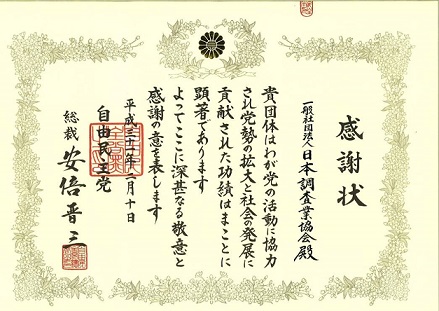 感謝状
一般社団法人日本調査業協会殿
貴団体はわが党の活動に協力
され党勢の拡大と社会の発展に
貢献された功績はまことに
顕著であります
よってここに深甚なる敬意と
感謝の意を表します
平成三十一年二月十日
自由民主党
総裁 安倍晋三